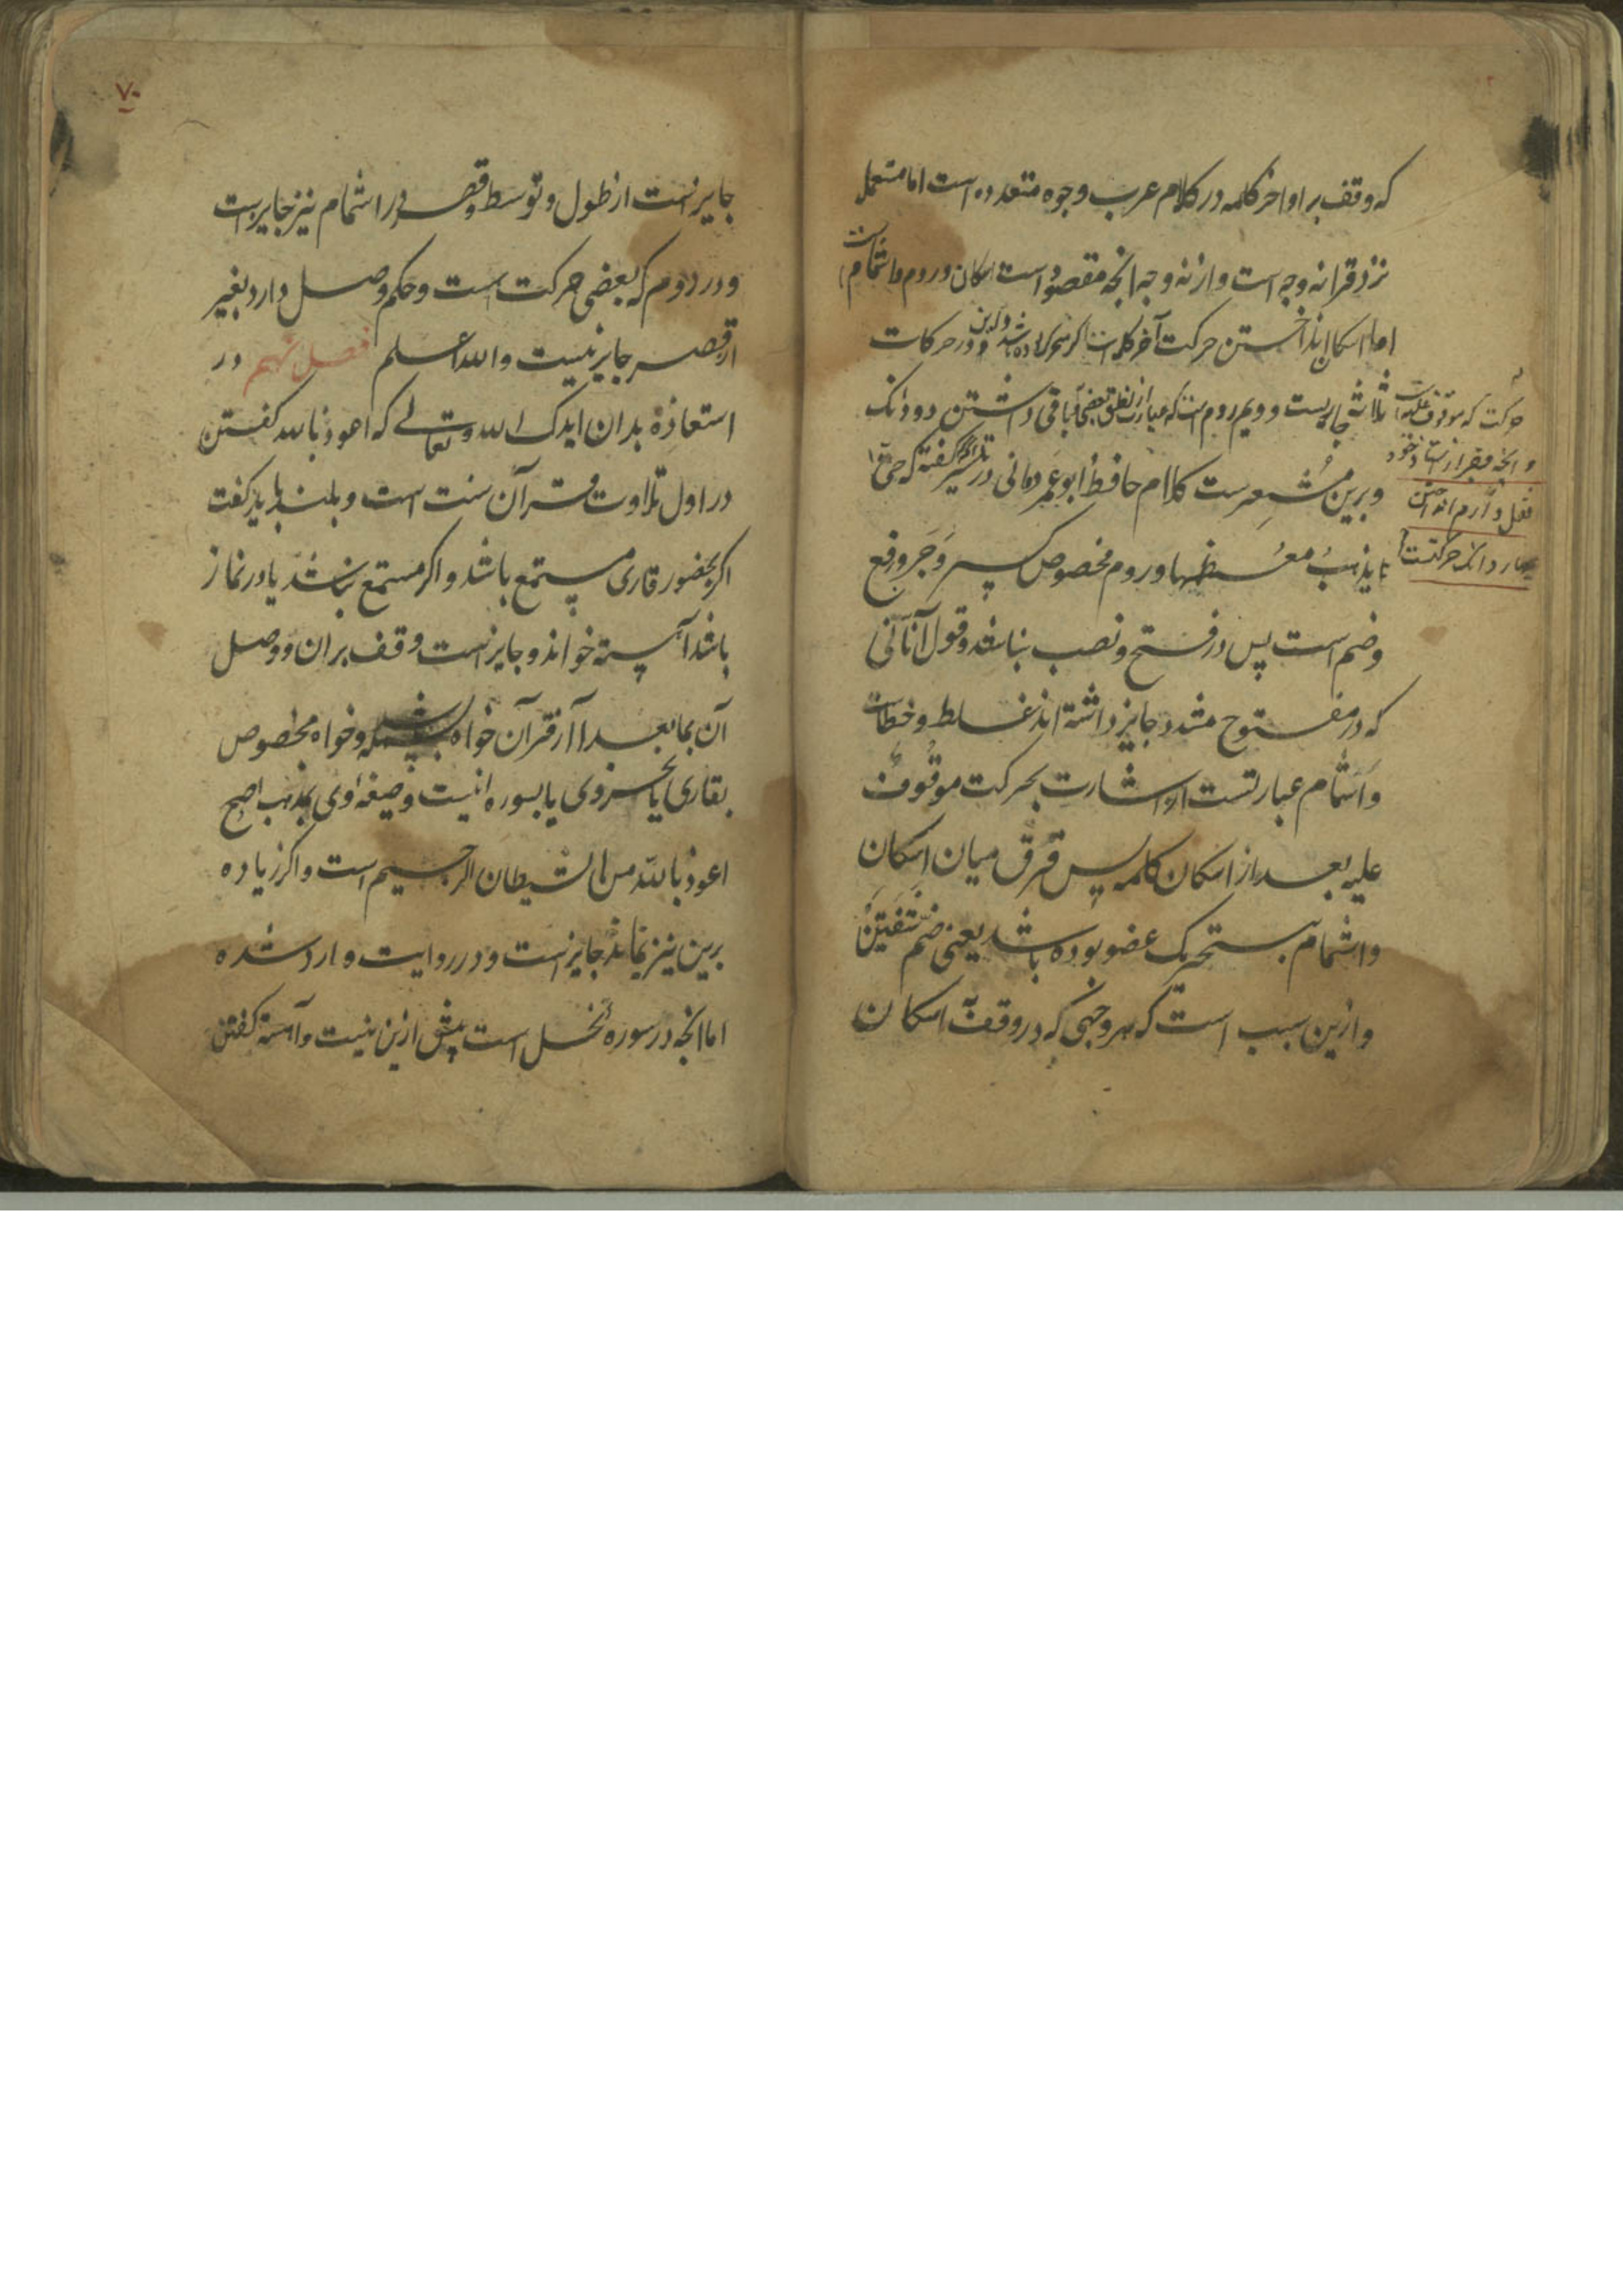 که وقف بر اواخر کلمه در کلام عرب وجوه متعدده است اما مستعمل
نزد قرا نه وجه است و از نه وجه انچه مقصود است اسکان و روم و اشمام است
اما اسکان انداختن حرکت آخر کلمه است اگر متحرک بوده باشد و این در حرکات
ثلاثه جاریست و دویم روم است که عبارت از نطق ببعضی باقی داشتن دو دانک
حرکت که موقوف علیه است
و انچه فقیر از استاد خود
نقل دارم انداختن
چهار دانک حرکتست
و برین مشعرست کلام حافظ ابو عمرو دانی در تیسیر گفته که حتی
یذهب معظمها و روم مخصوص کسر و جر و رفع
و ضم است پس در فتح و نصب نباشد و قول آنانی
که در مفتوح مشدد جایز داشته اند غلط و خطاست
و اشمام عبارتست از اشارت بحرکت موقوف
علیه بعد از اسکان کلمه پس فرق میان اسکان
و اشمام بتحریک عضو بوده باشد یعنی ضم شفتین
و ازین سبب است که هر وجهی که در وقف اسکان
۷۰
جایز است از طول و توسط و قصر در اشمام نیز جایز است
و در روم که بعضی حرکت است و حکم وصل دارد بغیر
از قصر جایز نیست و الله اعلم فصل نهم در
استعاذه بدان ایدک الله و تعالی که اعوذ بالله گفتن
در اول تلاوت قرآن سنت است و بلند باید گفت
اگر بحضور قاری مستمع باشد و اگر مستمع نباشد یا در نماز
باشد آهسته خواند و جایز است وقف بران و وصل
آن بمابعد از قرآن خواه بسمله و خواه مخصوص
بقاری یا جزوی یا بسوره نیست و صیغه اوی بمذهب اصح
اعوذ بالله من الشیطان الرجیم است و اگر زیاده
برین نیز نماند جایز است و در روایت وارد شده
اما انچه در سوره نحل است پیش ازین نیست و آهسته گفتن